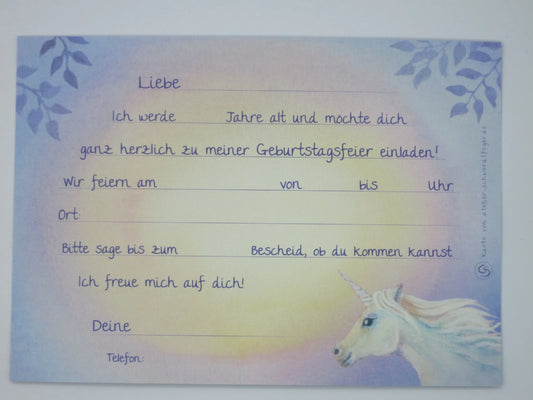 Liebe
Ich werde Jahre alt und möchte dich
ganz herzlich zu meiner Geburtstagsfeier einladen!
Wir feiern am von bis Uhr
Ort:
Bitte sage bis zum Bescheid, ob du kommen kannst
Ich freue mich auf dich!
Deine
Telefon:
Karte von